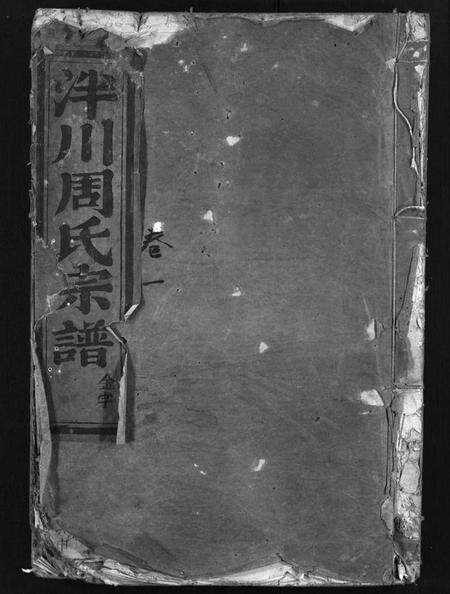 泮川周氏宗譜
金字
卷一